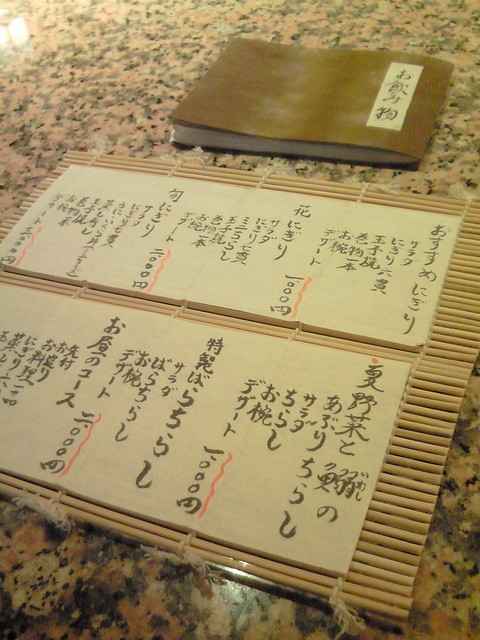 お飲み物
おすすめにぎり
サラダ
にぎり六貫
玉子焼
巻物一本
お椀
デザート
一〇〇〇円
花にぎり
サラダ
にぎり七貫
ミニちらし
玉子焼
巻物一本
お椀
デザート
二〇〇〇円
旬にぎり
サラダ
玉子焼
お椀
デザート
夏野菜と鰯の
いわし
あぶりちらし
サラダ
ちらし
お椀
デザート
一〇〇〇円
特製ばらちらし
サラダ
ばらちらし
お椀
デザート
二〇〇〇円
お昼のコース
先付
お造り
お料理二